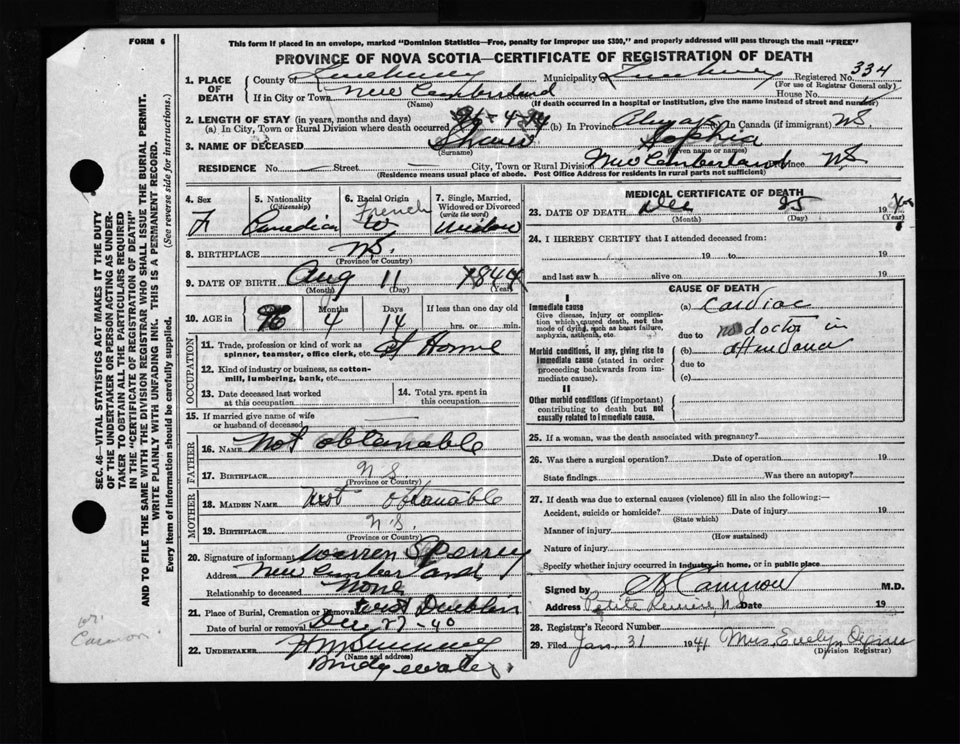 FORM 6
This form if placed in an envelope, marked "Dominion Statistics—Free, penalty for improper use $300," and properly addressed will pass through the mail "FREE"
PROVINCE OF NOVA SCOTIA—CERTIFICATE OF REGISTRATION OF DEATH
1. PLACE OF DEATH
County of Lunenburg Municipality of Lunenburg Registered No. 334
(For use of Registrar General only)
If in City or Town New Cumberland House No.
(Name) (If death occurred in a hospital or institution, give the name instead of street and number)
2. LENGTH OF STAY (in years, months and days)
(a) In City, Town or Rural Division where death occurred 96-4-14 (b) In Province Always (c) In Canada (if immigrant) N.S.
3. NAME OF DECEASED Sophia
(Surname) (Given name or names)
RESIDENCE No. — Street — City, Town or Rural Division New Cumberland Province N.S.
(Residence means usual place of abode. Post Office Address for residents in rural parts not sufficient)
4. Sex F
5. Nationality (Citizenship) Canadian
6. Racial Origin French W
7. Single, Married, Widowed or Divorced (write the word) Widow
8. BIRTHPLACE N.S.
(Province or Country)
9. DATE OF BIRTH Aug 11 1844
(Month) (Day) (Year)
10. AGE in 96 Months 4 Days 14 If less than one day old
hrs. or min.
OCCUPATION
11. Trade, profession or kind of work as spinner, teamster, office clerk, etc. At Home
12. Kind of industry or business, as cotton-mill, lumbering, bank, etc.
13. Date deceased last worked at this occupation
14. Total yrs. spent in this occupation
15. If married give name of wife or husband of deceased
FATHER
16. NAME Not obtainable
17. BIRTHPLACE N.S.
(Province or Country)
MOTHER
18. MAIDEN NAME Not obtainable
19. BIRTHPLACE N.S.
(Province or Country)
20. Signature of informant Warren Sperry
Address New Cumberland
Relationship to deceased None
21. Place of Burial, Cremation or Removal West Dublin
Date of burial or removal Dec 27-40
22. UNDERTAKER
(Name and address)
Bridgewater
MEDICAL CERTIFICATE OF DEATH
23. DATE OF DEATH Dec 25 19
(Month) (Day) (Year)
24. I HEREBY CERTIFY that I attended deceased from:
19 to 19
and last saw h alive on 19
CAUSE OF DEATH
I
Immediate cause
Give disease, injury or complication which caused death, not the mode of dying, such as heart failure, asphyxia, asthenia, etc.
(a) Cardiac
due to no doctor in
Morbid conditions, if any, giving rise to immediate cause (stated in order proceeding backwards from immediate cause).
(b) attendance
due to
(c)
II
Other morbid conditions (if important) contributing to death but not causally related to immediate cause.
25. If a woman, was the death associated with pregnancy?
26. Was there a surgical operation? Date of operation 19
State findings Was there an autopsy?
27. If death was due to external causes (violence) fill in also the following:—
Accident, suicide or homicide? Date of injury 19
(State which)
Manner of injury
(How sustained)
Nature of injury
Specify whether injury occurred in industry, in home, or in public place
Signed by M.D.
Address Petite Riviere N.S. Date 19
28. Registrar's Record Number
29. Filed Jan, 31 1941 Mrs. Evelyn
(Division Registrar)
SEC. 46—VITAL STATISTICS ACT MAKES IT THE DUTY
OF THE UNDERTAKER OR PERSON ACTING AS UNDER-
TAKER TO OBTAIN ALL THE PARTICULARS REQUIRED
IN THE "CERTIFICATE OF REGISTRATION OF DEATH"
AND TO FILE THE SAME WITH THE DIVISION REGISTRAR WHO SHALL ISSUE THE BURIAL PERMIT.
WRITE PLAINLY WITH UNFADING INK. THIS IS A PERMANENT RECORD.
Every item of information should be carefully supplied. (See reverse side for instructions.)